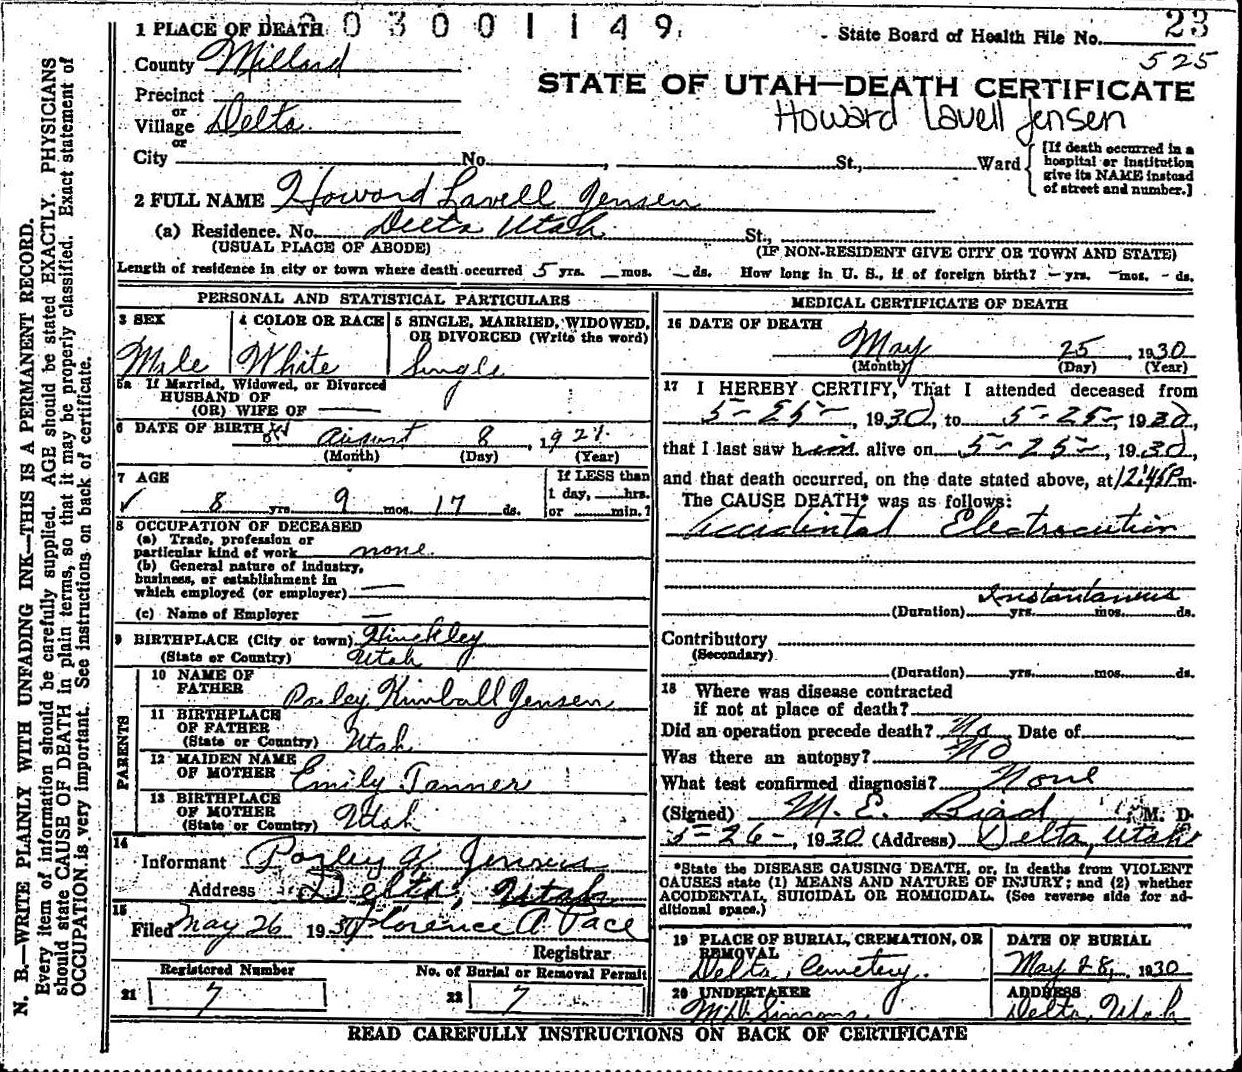 1 PLACE OF DEATH 003001149
State Board of Health File No. 23
525
County Millard
STATE OF UTAH—DEATH CERTIFICATE
Precinct
or
Village Delta
or
Howard Lavell Jensen
City No. , St., Ward
[If death occurred in a
hospital or institution
give its NAME instead
of street and number.]
2 FULL NAME Howard Lavell Jensen
(a) Residence. No. Delta Utah St.,
(USUAL PLACE OF ABODE) (IF NON-RESIDENT GIVE CITY OR TOWN AND STATE)
Length of residence in city or town where death occurred 5 yrs. — mos. — ds. How long in U. S., if of foreign birth? — yrs. — mos. - ds.
PERSONAL AND STATISTICAL PARTICULARS
3 SEX
Male
4 COLOR OR RACE
White
5 SINGLE, MARRIED, WIDOWED,
OR DIVORCED (Write the word)
Single
5a If Married, Widowed, or Divorced
HUSBAND OF
(OR) WIFE OF
6 DATE OF BIRTH August 8, 1921
(Month) (Day) (Year)
7 AGE
8 yrs. 9 mos. 17 ds.
If LESS than
1 day, hrs.
or min.?
8 OCCUPATION OF DECEASED
(a) Trade, profession or
particular kind of work none.
(b) General nature of industry,
business, or establishment in
which employed (or employer)
(c) Name of Employer
9 BIRTHPLACE (City or town) Hinckley
(State or Country) Utah
PARENTS
10 NAME OF
FATHER Parley Kimball Jensen
11 BIRTHPLACE
OF FATHER
(State or Country) Utah
12 MAIDEN NAME
OF MOTHER Emily Tanner
13 BIRTHPLACE
OF MOTHER
(State or Country) Utah
14
Informant Parley K. Jensen
Address Delta, Utah
15
Filed May 26 1930 Florence A. Pace
Registrar
Registered Number
21 7
No. of Burial or Removal Permit
22 7
MEDICAL CERTIFICATE OF DEATH
16 DATE OF DEATH
May 25, 1930
(Month) (Day) (Year)
17 I HEREBY CERTIFY, That I attended deceased from
5-25-, 1930, to 5-25-, 1930,
that I last saw him alive on 5-25-, 1930,
and that death occurred, on the date stated above, at 12:45P m.
The CAUSE DEATH* was as follows:
Accidental Electrocution
Instantaneus
(Duration) yrs. mos. ds.
Contributory
(Secondary)
(Duration) yrs. mos. ds.
18 Where was disease contracted
if not at place of death?
Did an operation precede death? No Date of
Was there an autopsy? NO
What test confirmed diagnosis? None
(Signed) M. E. Bird M. D.
5-26-, 1930 (Address) Delta, Utah
*State the DISEASE CAUSING DEATH, or, in deaths from VIOLENT
CAUSES state (1) MEANS AND NATURE OF INJURY; and (2) whether
ACCIDENTAL, SUICIDAL OR HOMICIDAL. (See reverse side for ad-
ditional space.)
19 PLACE OF BURIAL, CREMATION, OR
REMOVAL
Delta, Cemetery.
DATE OF BURIAL
May 28, 1930
20 UNDERTAKER
ADDRESS
Delta, Utah
READ CAREFULLY INSTRUCTIONS ON BACK OF CERTIFICATE
N. B.—WRITE PLAINLY WITH UNFADING INK—THIS IS A PERMANENT RECORD.
Every item of information should be carefully supplied. AGE should be stated EXACTLY. PHYSICIANS
should state CAUSE OF DEATH in plain terms, so that it may be properly classified. Exact statement of
OCCUPATION is very important. See instructions on back of certificate.